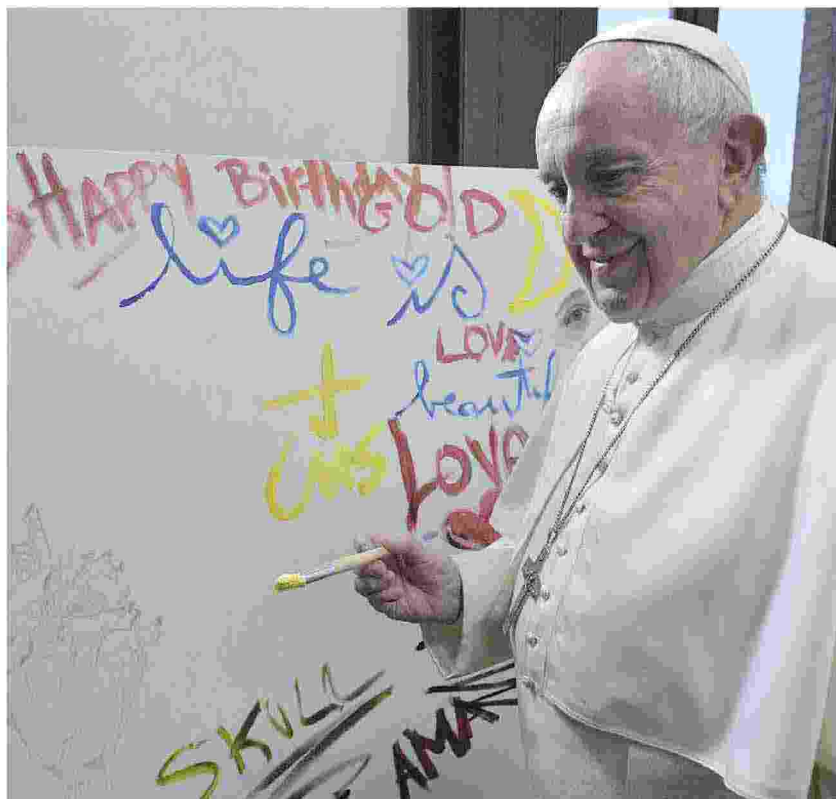 HAPPY BirthDay
GOlD
life is
LOVE
beautiful
LOVE
SKULL
AMAN